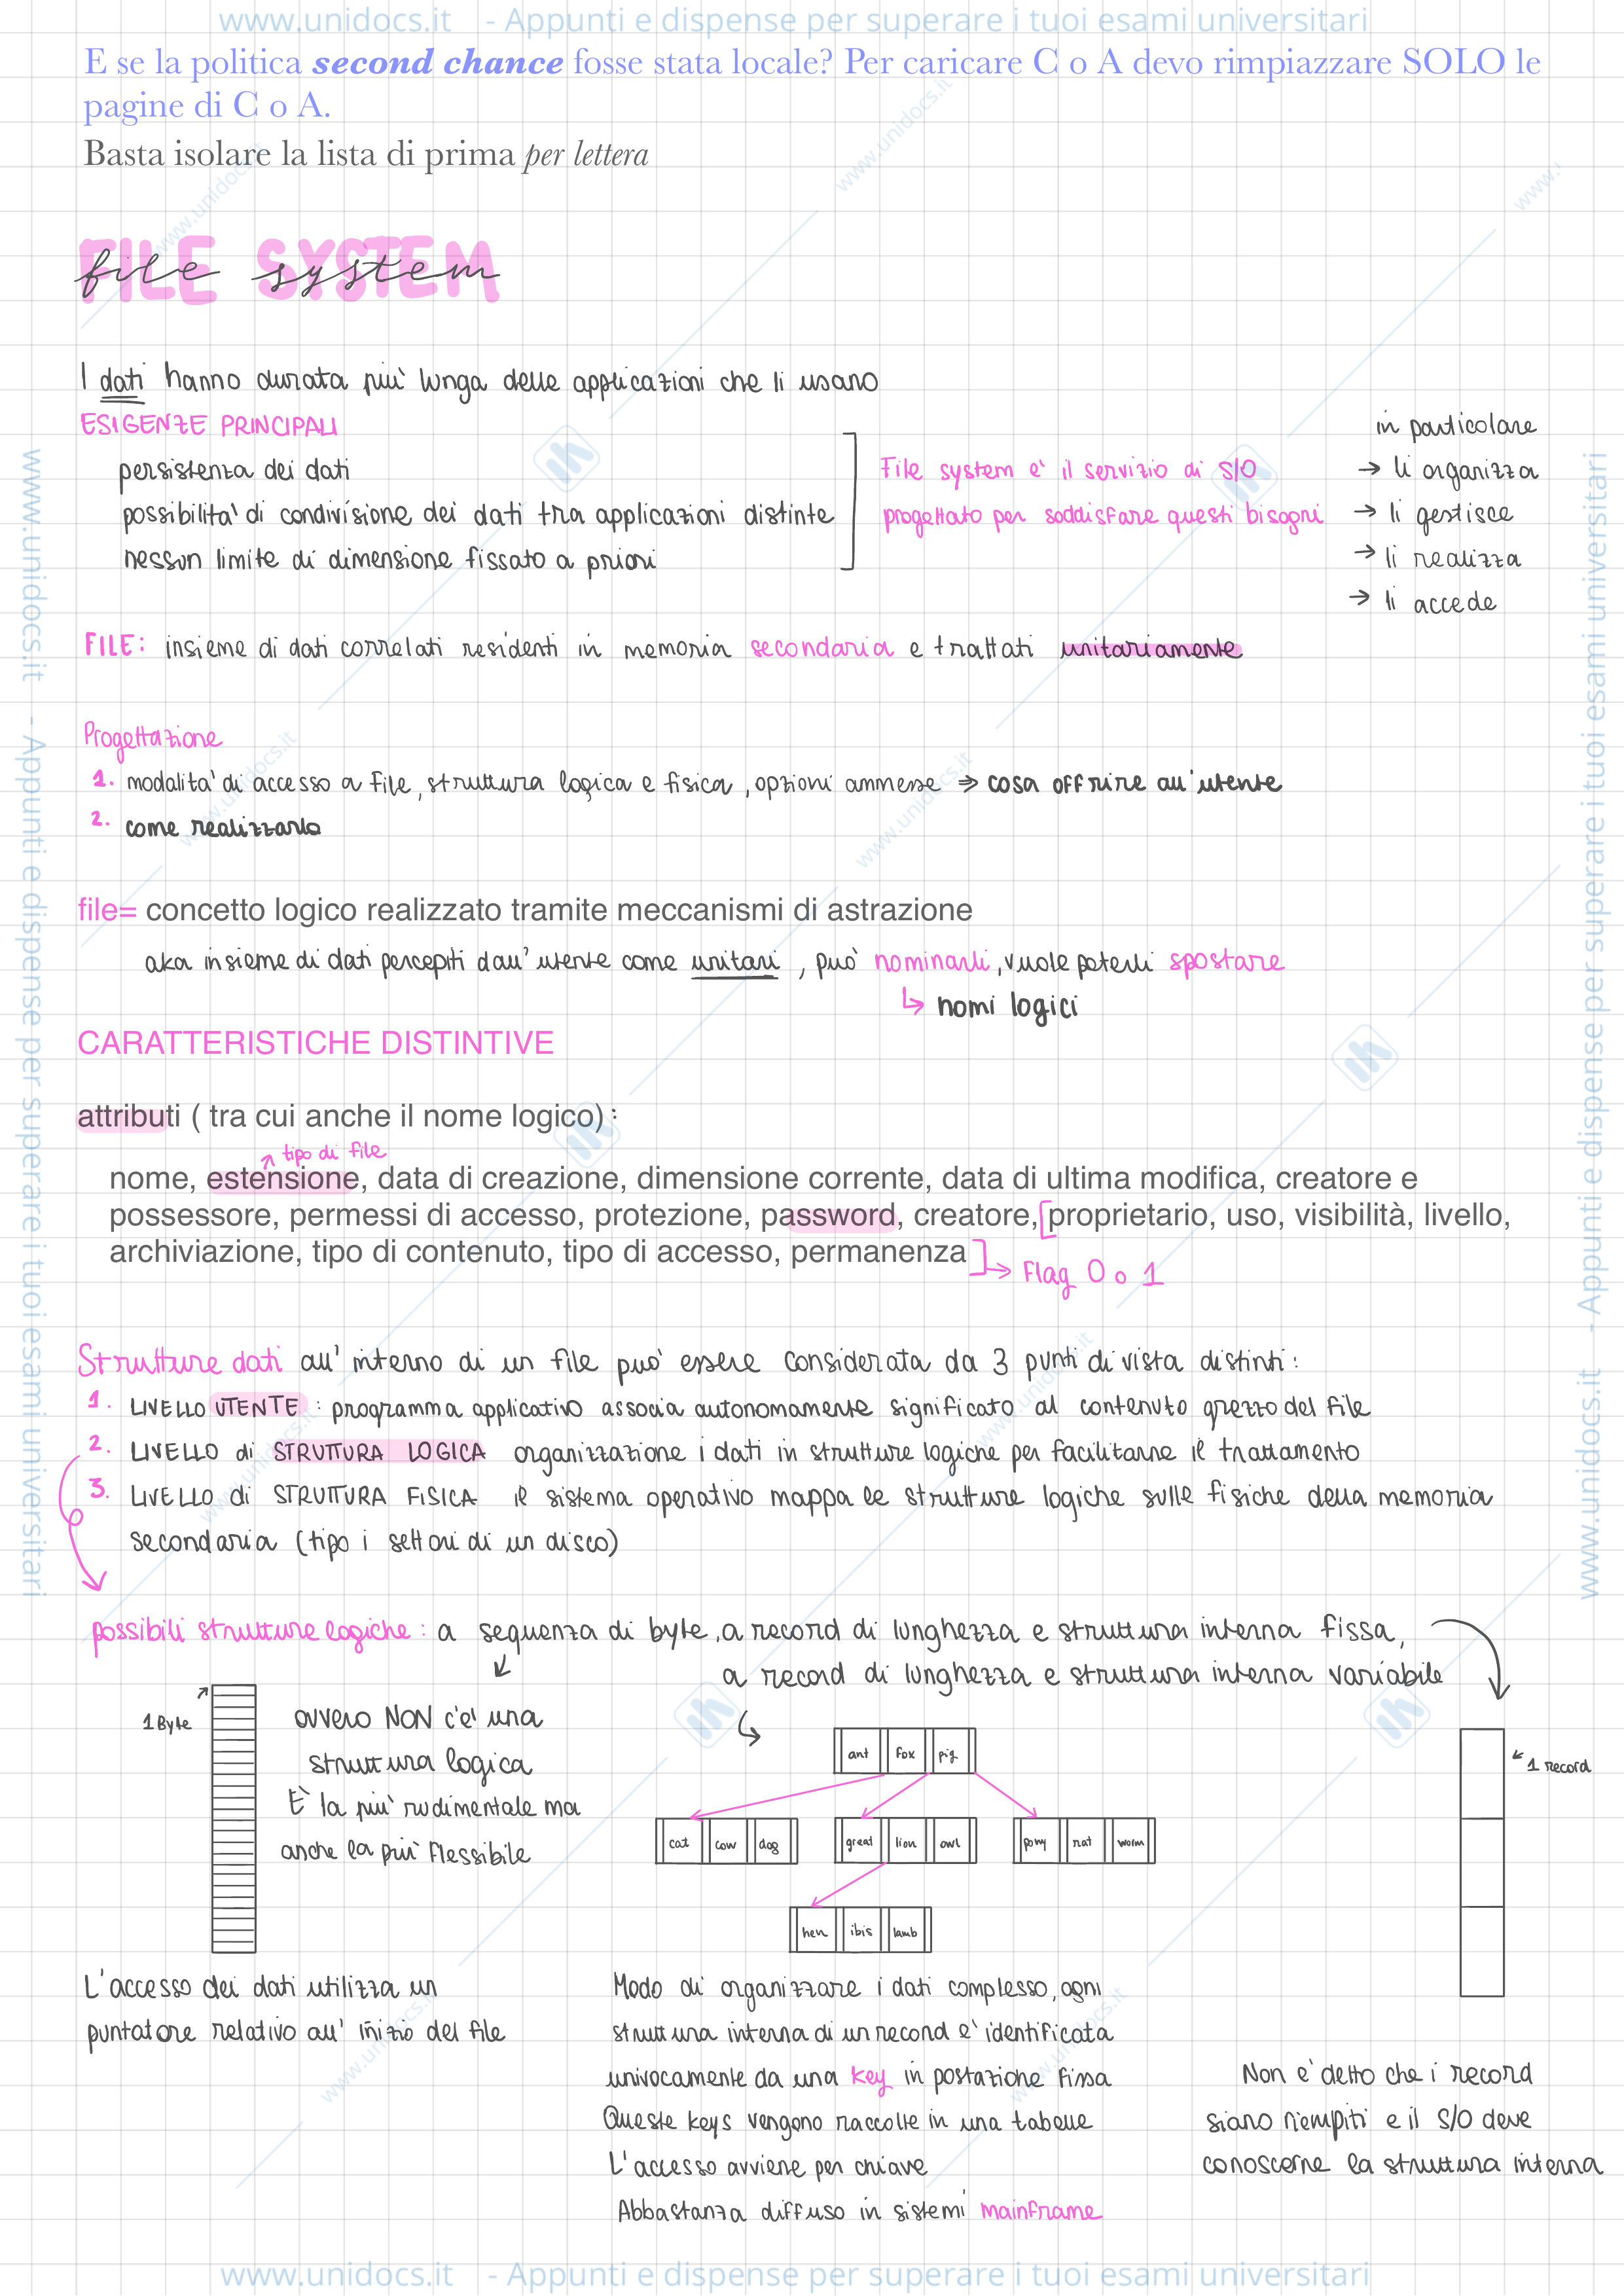 www.unidocs.it - Appunti e dispense per superare i tuoi esami universitari
E se la politica second chance fosse stata locale? Per caricare C o A devo rimpiazzare SOLO le
pagine di C o A.
Basta isolare la lista di prima per lettera
FILE SYSTEM
file system
I dati hanno durata più lunga delle applicazioni che li usano
ESIGENZE PRINCIPALI
persistenza dei dati
possibilità di condivisione dei dati tra applicazioni distinte
nessun limite di dimensione fissato a priori
File system è il servizio di S/O
progettato per soddisfare questi bisogni
in particolare
→ li organizza
→ li gestisce
→ li realizza
→ li accede
FILE: insieme di dati correlati residenti in memoria secondaria e trattati unitariamente
Progettazione
1. modalità di accesso a file, struttura logica e fisica, opzioni ammesse ⇒ cosa offrire all'utente
2. come realizzarlo
file= concetto logico realizzato tramite meccanismi di astrazione
aka insieme di dati percepiti dall'utente come unitari, può nominarli, vuole poterli spostare
↳ nomi logici
CARATTERISTICHE DISTINTIVE
attributi ( tra cui anche il nome logico):
↗ tipo di file
nome, estensione, data di creazione, dimensione corrente, data di ultima modifica, creatore e
possessore, permessi di accesso, protezione, password, creatore, [proprietario, uso, visibilità, livello,
archiviazione, tipo di contenuto, tipo di accesso, permanenza ]→ Flag 0 o 1
Strutture dati all'interno di un file può essere considerata da 3 punti di vista distinti:
1. LIVELLO UTENTE: programma applicativo associa autonomamente significato al contenuto grezzo del file
2. LIVELLO di STRUTTURA LOGICA organizzazione i dati in strutture logiche per facilitarne il trattamento
3. LIVELLO di STRUTTURA FISICA il sistema operativo mappa le strutture logiche sulle fisiche della memoria
secondaria (tipo i settori di un disco)
possibili strutture logiche: a sequenza di byte, a record di lunghezza e struttura interna fissa,
a record di lunghezza e struttura interna variabile
1 Byte
ovvero NON c'è una
struttura logica
È la più rudimentale ma
anche la più flessibile
ant fox pig
cat cow dog
great lion owl
pony rat worm
hen ibis lamb
1 record
L'accesso dei dati utilizza un
puntatore relativo all'inizio del file
Modo di organizzare i dati complesso, ogni
struttura interna di un record è identificata
univocamente da una key in postazione fissa
Queste keys vengono raccolte in una tabelle
L'accesso avviene per chiave
Abbastanza diffuso in sistemi mainframe
Non è detto che i record
siano riempiti e il S/O deve
conoscerne la struttura interna
www.unidocs.it - Appunti e dispense per superare i tuoi esami universitari
www.unidocs.it - Appunti e dispense per superare i tuoi esami universitari
www.unidocs.it - Appunti e dispense per superare i tuoi esami universitari